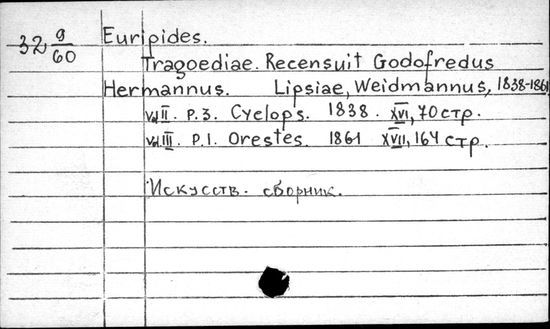 32 9/60
Euripides.
Tragoediae. Recensuit Godofredus
Hermannus. Lipsiae, Weidmannus, 1838-1861
vol II. P.3. Cyclops. 1838. XVI, 70 стр.
vol III. P.1. Orestes. 1861 XVII, 164 стр.
Искусств. сборник.